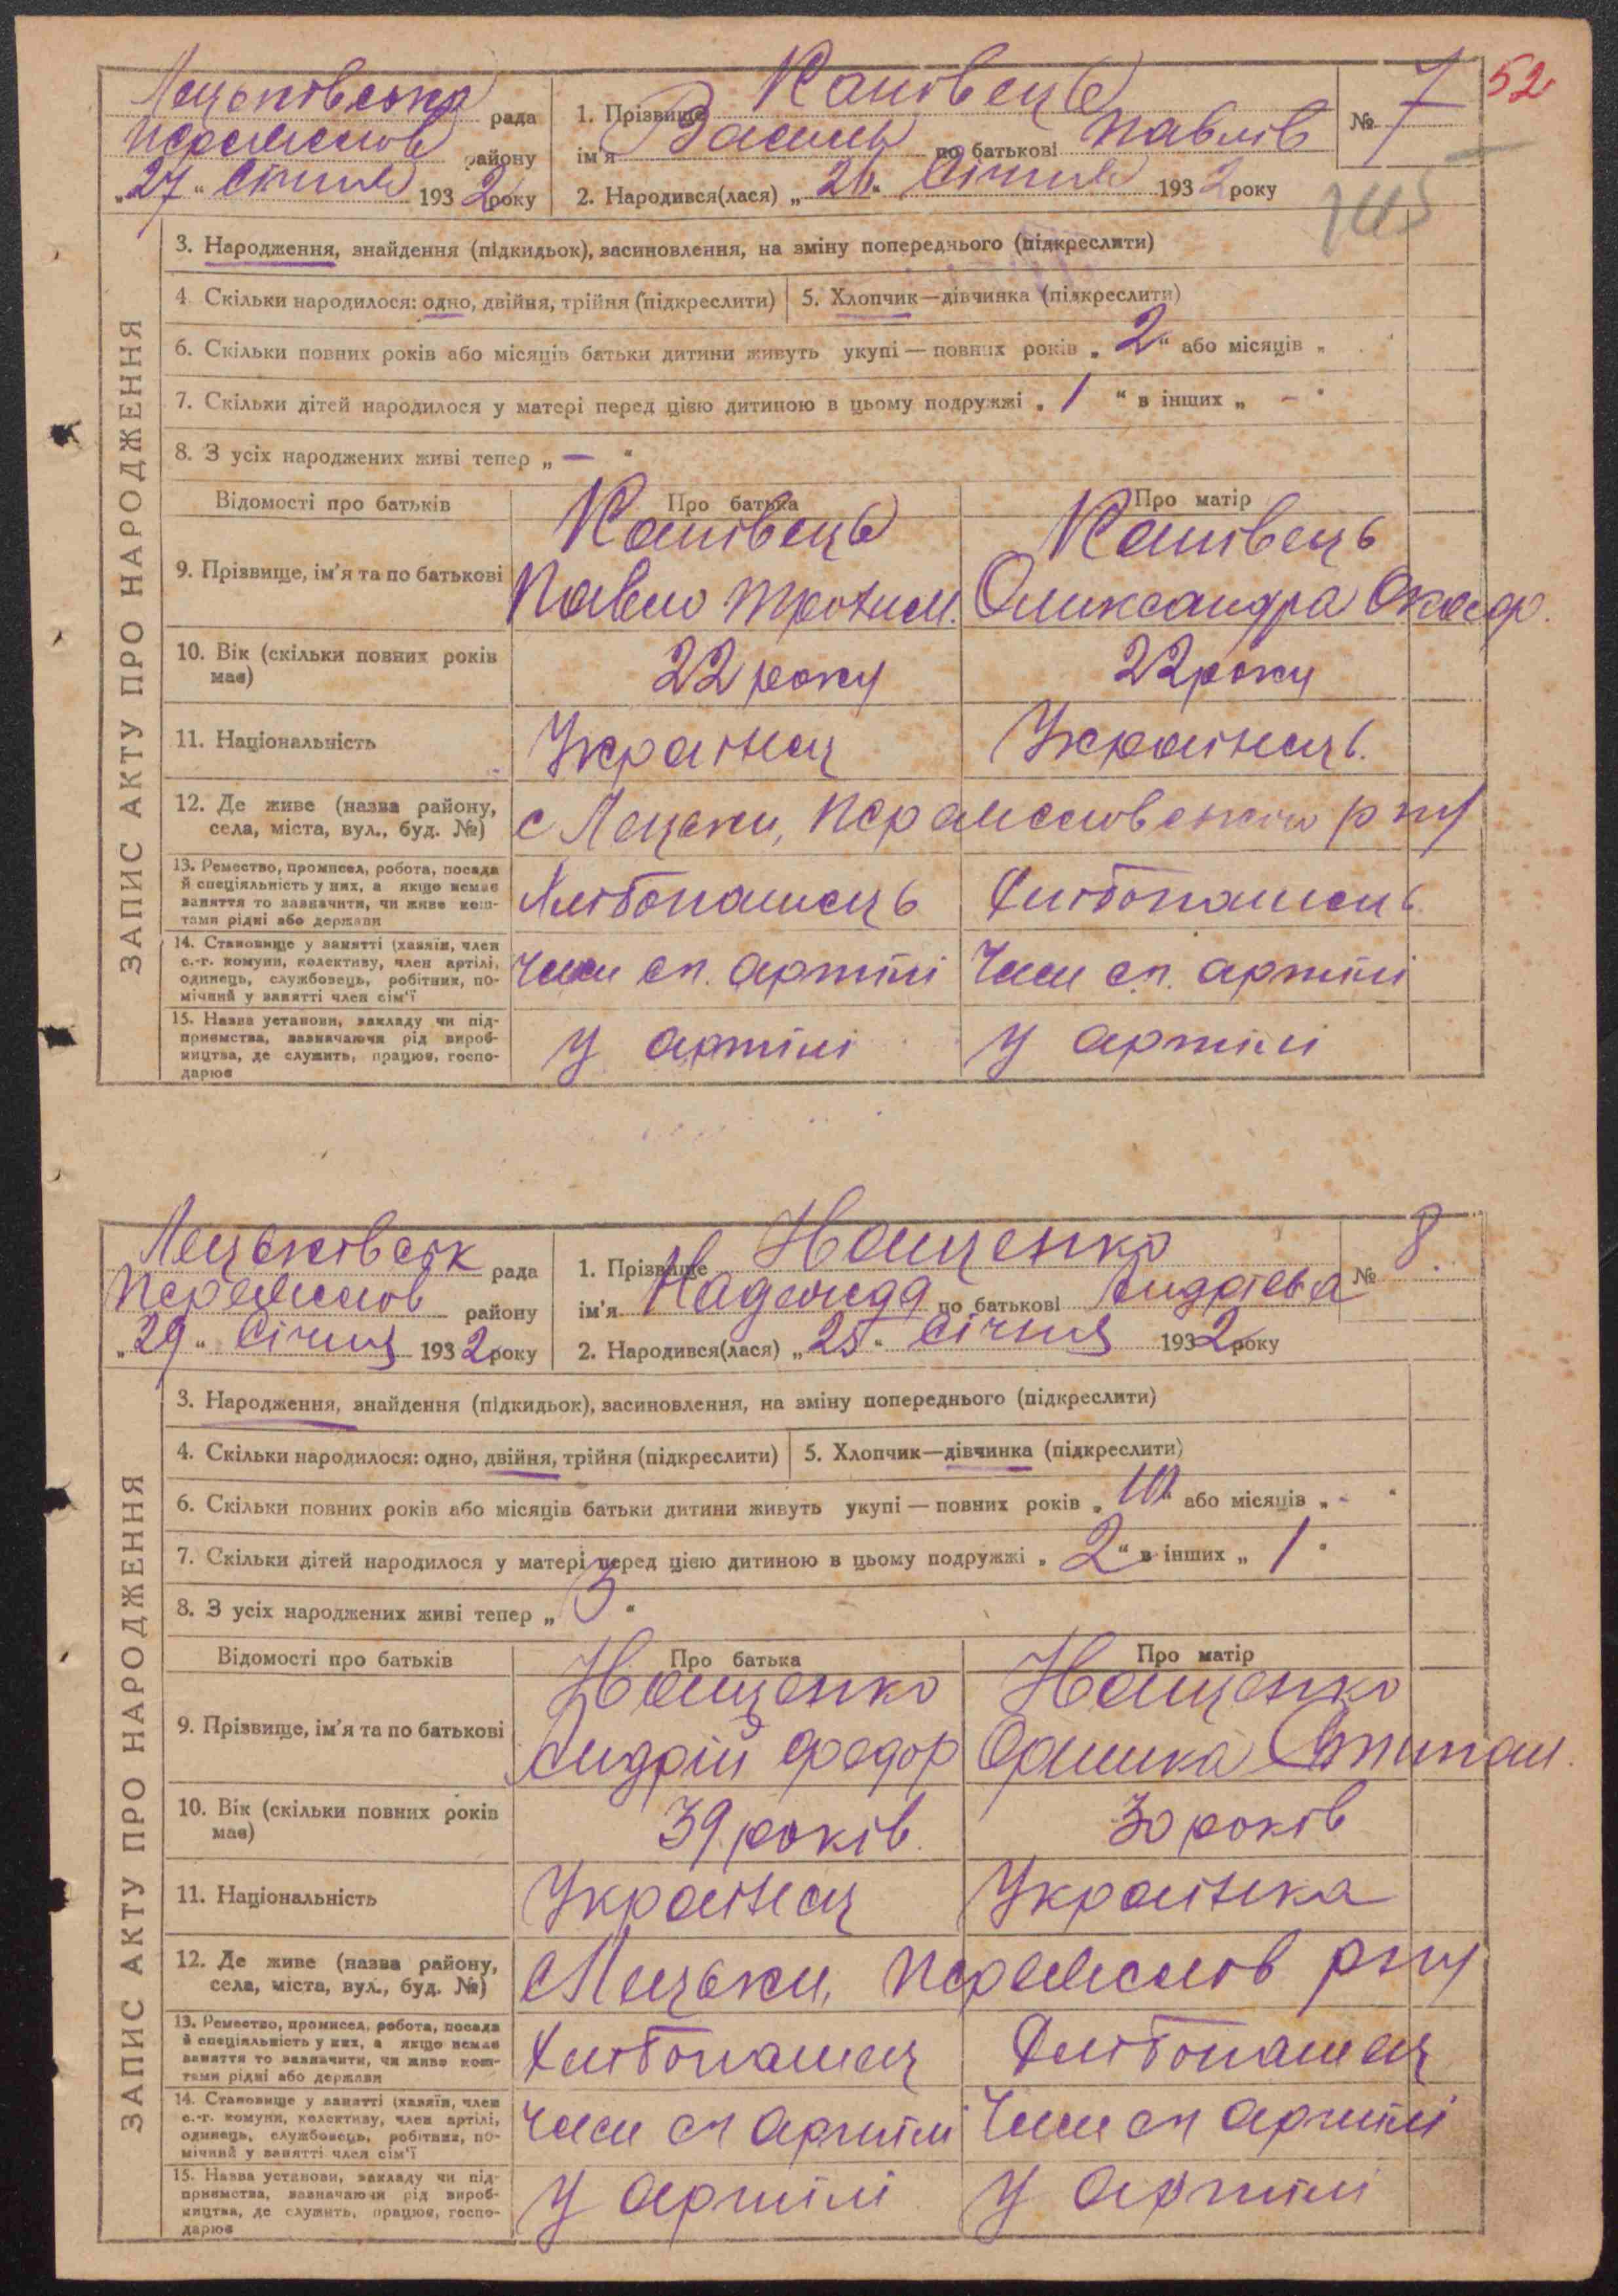 52
Лецьківська рада
Переяслов району
„27“ Січня 1932 року
1. Прізвище Канівець
ім'я Василь по батькові Павлів
2. Народився(лася) „26“ Січня 1932 року
№ 7
145
ЗАПИС АКТУ ПРО НАРОДЖЕННЯ
3. Народження, знайдення (підкидьок), засиновлення, на зміну попереднього (підкреслити)
4 Скільки народилося: одно, двійня, трійня (підкреслити)
5. Хлопчик—дівчинка (підкреслити)
6. Скільки повних років або місяців батьки дитини живуть укупі — повних років „2“ або місяців „
7. Скільки дітей народилося у матері перед цією дитиною в цьому подружжі „1“ в інших „-“
8. З усіх народжених живі тепер „—“
Відомості про батьків
Про батька
Про матір
9. Прізвище, ім'я та по батькові
Канівець
Павло Трохим.
Канівець
Олександра
10. Вік (скільки повних років
має)
22 року
22 року
11. Національність
Українец
Українець.
12. Де живе (назва району,
села, міста, вул., буд. №)
с Лецьки, Переясловського р ну
13. Ремество, промисел, робота, посада
й спеціяльність у них, а якщо немає
заняття то зазначити, чи живе кош-
тами рідні або держави
Хлібопашець
Хлібопашець
14. Становище у занятті (хазяїн, член
с.-г. комуни, колективу, член артілі,
одинець, службовець, робітник, по-
мічний у занятті член сім'ї
Член сп. артілі
Член сп. артілі
15. Назва установи, закладу чи під-
приємства, зазначаючи рід вироб-
ництва, де служить, працює, госпо-
дарює
у артілі
у артілі
Лецьківськ рада
Переяслов району
„29“ Січня 1932 року
1. Прізвище Нощенко
ім'я Надежда по батькові Андрієва
2. Народився(лася) „25“ Січня 1932 року
№ 8.
ЗАПИС АКТУ ПРО НАРОДЖЕННЯ
3. Народження, знайдення (підкидьок), засиновлення, на зміну попереднього (підкреслити)
4. Скільки народилося: одно, двійня, трійня (підкреслити)
5. Хлопчик—дівчинка (підкреслити)
6. Скільки повних років або місяців батьки дитини живуть укупі — повних років „10“ або місяців „-“
7. Скільки дітей народилося у матері перед цією дитиною в цьому подружжі „2“ в інших „1“
8. З усіх народжених живі тепер „3“
Відомості про батьків
Про батька
Про матір
9. Прізвище, ім'я та по батькові
Нощенко
Андрій Федор
Нощенко
Оришка Степан.
10. Вік (скільки повних років
має)
39 років.
30 років
11. Національність
Українец
Українка
12. Де живе (назва району,
села, міста, вул., буд. №)
с Лецьки, Переяслов р ну
13. Ремество, промисел, робота, посада
й спеціяльність у них, а якщо немає
заняття то зазначити, чи живе кош-
тами рідні або держави
Хлібопашец
Хлібопашец
14. Становище у занятті (хазяїн, член
с.-г. комуни, колективу, член артілі,
одинець, службовець, робітник, по-
мічний у занятті член сім'ї
Член сп артілі
Член сп артілі
15. Назва установи, закладу чи під-
приємства, зазначаючи рід вироб-
ництва, де служить, працює, госпо-
дарює
у артілі
у артілі